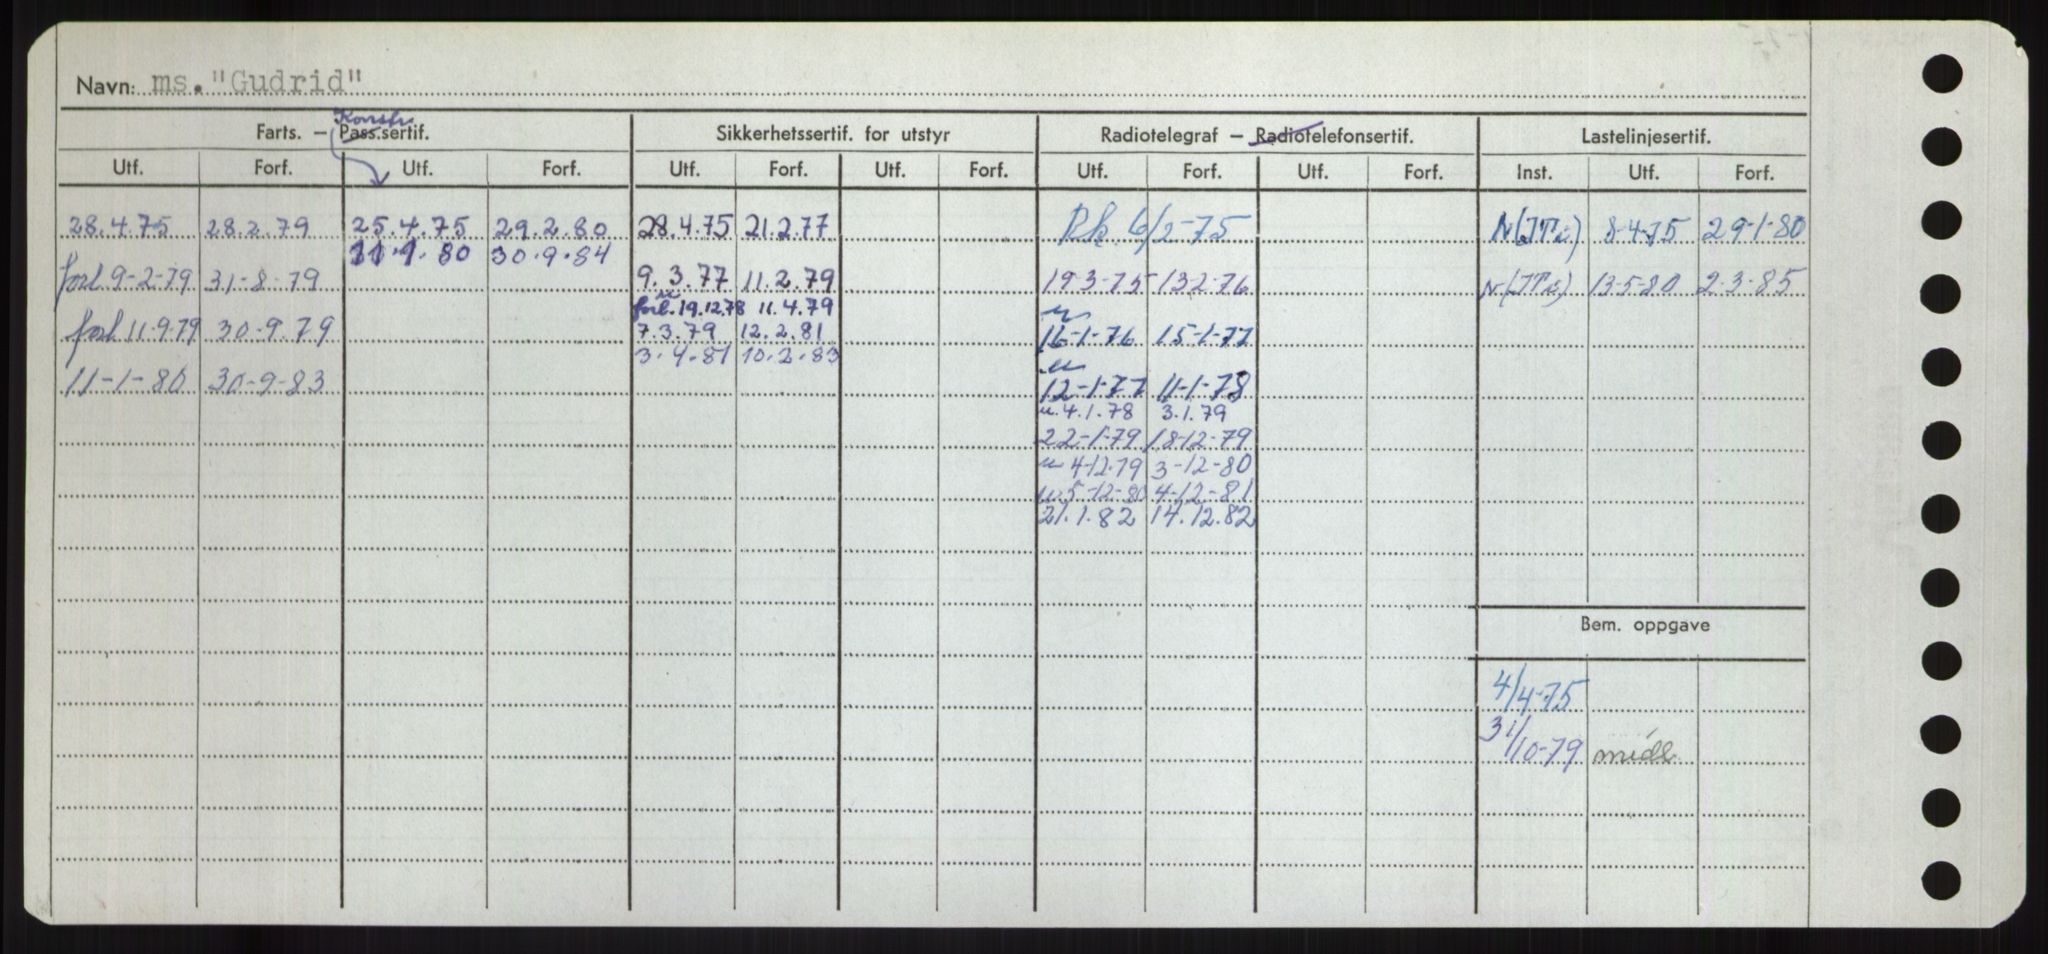 Navn: ms. "Gudrid"
Konstr.
Farts. – Pass.sertif. Sikkerhetssertif. for utstyr Radiotelegraf – Radiotelefonsertif. Lastelinjesertif.
Utf. Forf. Utf. Forf. Utf. Forf. Utf. Forf. Utf. Forf. Utf. Forf. Inst. Utf. Forf.
28.4.75 28.2.79 25.4.75 29.2.80 28.4.75 21.2.77 Rk 6/2-75 N(JTc) 8-4-75 29-1-80
11.1.80 30.9.84
forl 9-2-79 31-8-79 9.3.77 11.2.79 19-3-75 13-2-76 N(JTc) 13-5-80 2-3-85
u
forl. 19.12.78 11.4.79
forl 11-9-79 30-9.79 7.3.79 12.2.81 16-1-76 15-1-77
3.4.81 10.2.83
11-1-80 30-9-83 12-1-77 11-1-78
u. 4.1.78 3.1.79
22-1-79 18-12-79
u 4-12-79 3-12-80
u. 5-12-80 4-12-81
21.1.82 14.12.82
Bem. oppgave
4/4-75
31/10-79 midl.